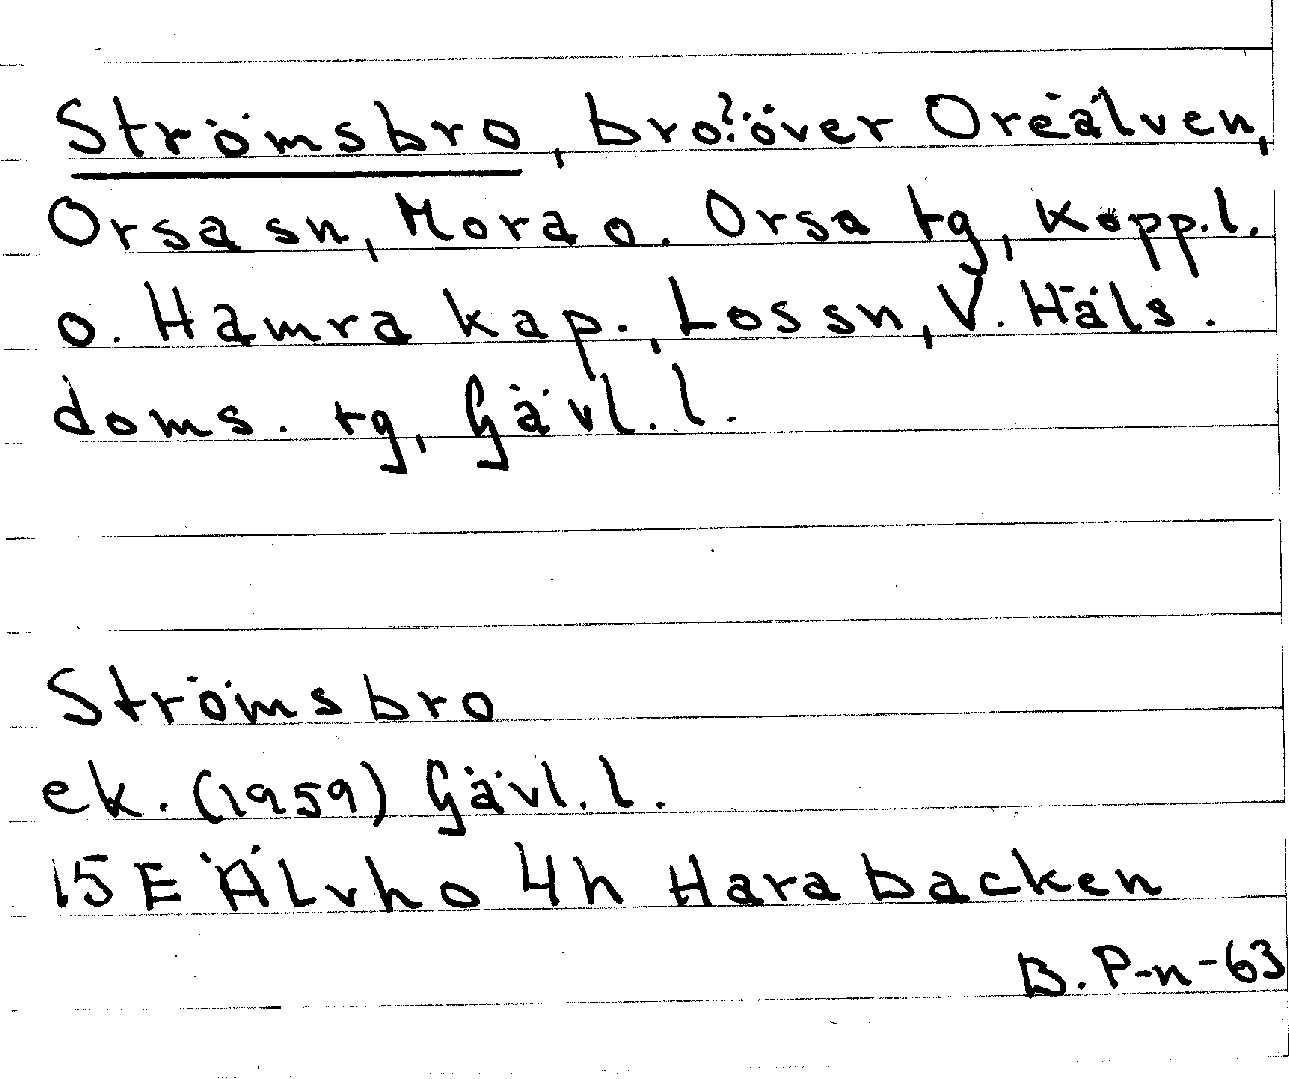 Strömsbro, bro? över Oreälven,
Orsa sn, Mora o. Orsa tg, Kopp.l.
o. Hamra kap., Los sn, V. Häls.
doms. tg, Gävl. l.
Strömsbro
ek. (1959) Gävl. l.
15 E Älvho 4h Harabacken
B. P-n-63